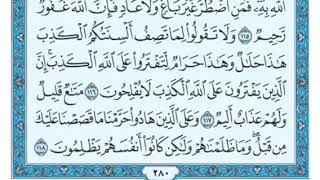 ٱللَّهِ بِهِۦۖ فَمَنِ ٱضۡطُرَّ غَيۡرَ بَاغٖ وَلَا عَادٖ فَإِنَّ ٱللَّهَ غَفُورٞ
رَّحِيمٞ ١١٥ وَلَا تَقُولُواْ لِمَا تَصِفُ أَلۡسِنَتُكُمُ ٱلۡكَذِبَ
هَٰذَا حَلَٰلٞ وَهَٰذَا حَرَامٞ لِّتَفۡتَرُواْ عَلَى ٱللَّهِ ٱلۡكَذِبَۚ إِنَّ
ٱلَّذِينَ يَفۡتَرُونَ عَلَى ٱللَّهِ ٱلۡكَذِبَ لَا يُفۡلِحُونَ ١١٦ مَتَٰعٞ قَلِيلٞ
وَلَهُمۡ عَذَابٌ أَلِيمٞ ١١٧ وَعَلَى ٱلَّذِينَ هَادُواْ حَرَّمۡنَا مَا قَصَصۡنَا عَلَيۡكَ
مِن قَبۡلُۖ وَمَا ظَلَمۡنَٰهُمۡ وَلَٰكِن كَانُوٓاْ أَنفُسَهُمۡ يَظۡلِمُونَ ١١٨
٢٨٠